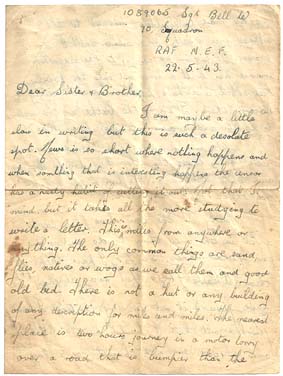 1089065 Sgt Bill W
70 Squadron
RAF M.E.F.
22-5-43.
Dear Sister & Brother,
I am maybe a little
slow in writing but this is such a desolate
spot. News is so short where nothing happens and
when somthing that is interesting happens the censor
has a nasty habit of cutting it out, not that I
mind, but it takes all the more studying to
write a letter. This miles from anywhere or
any thing. The only common things are sand,
flies, natives or wogs as we call them and good
old bed. There is not a hut or any building
of any description for miles and miles. The nearest
place is two hours journey in a motor lorry
over a road that is bumpier than the